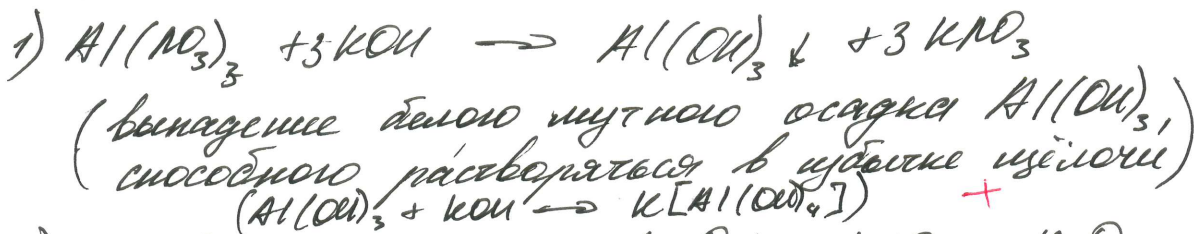 1) Al(NO₃)₃ + 3KOH → Al(OH)₃ ↓ + 3KNO₃
(выпадение белого мутного осадка Al(OH)₃,
способного растворяться в избытке щёлочи)
(Al(OH)₃ + KOH → K[Al(OH)₄]) +